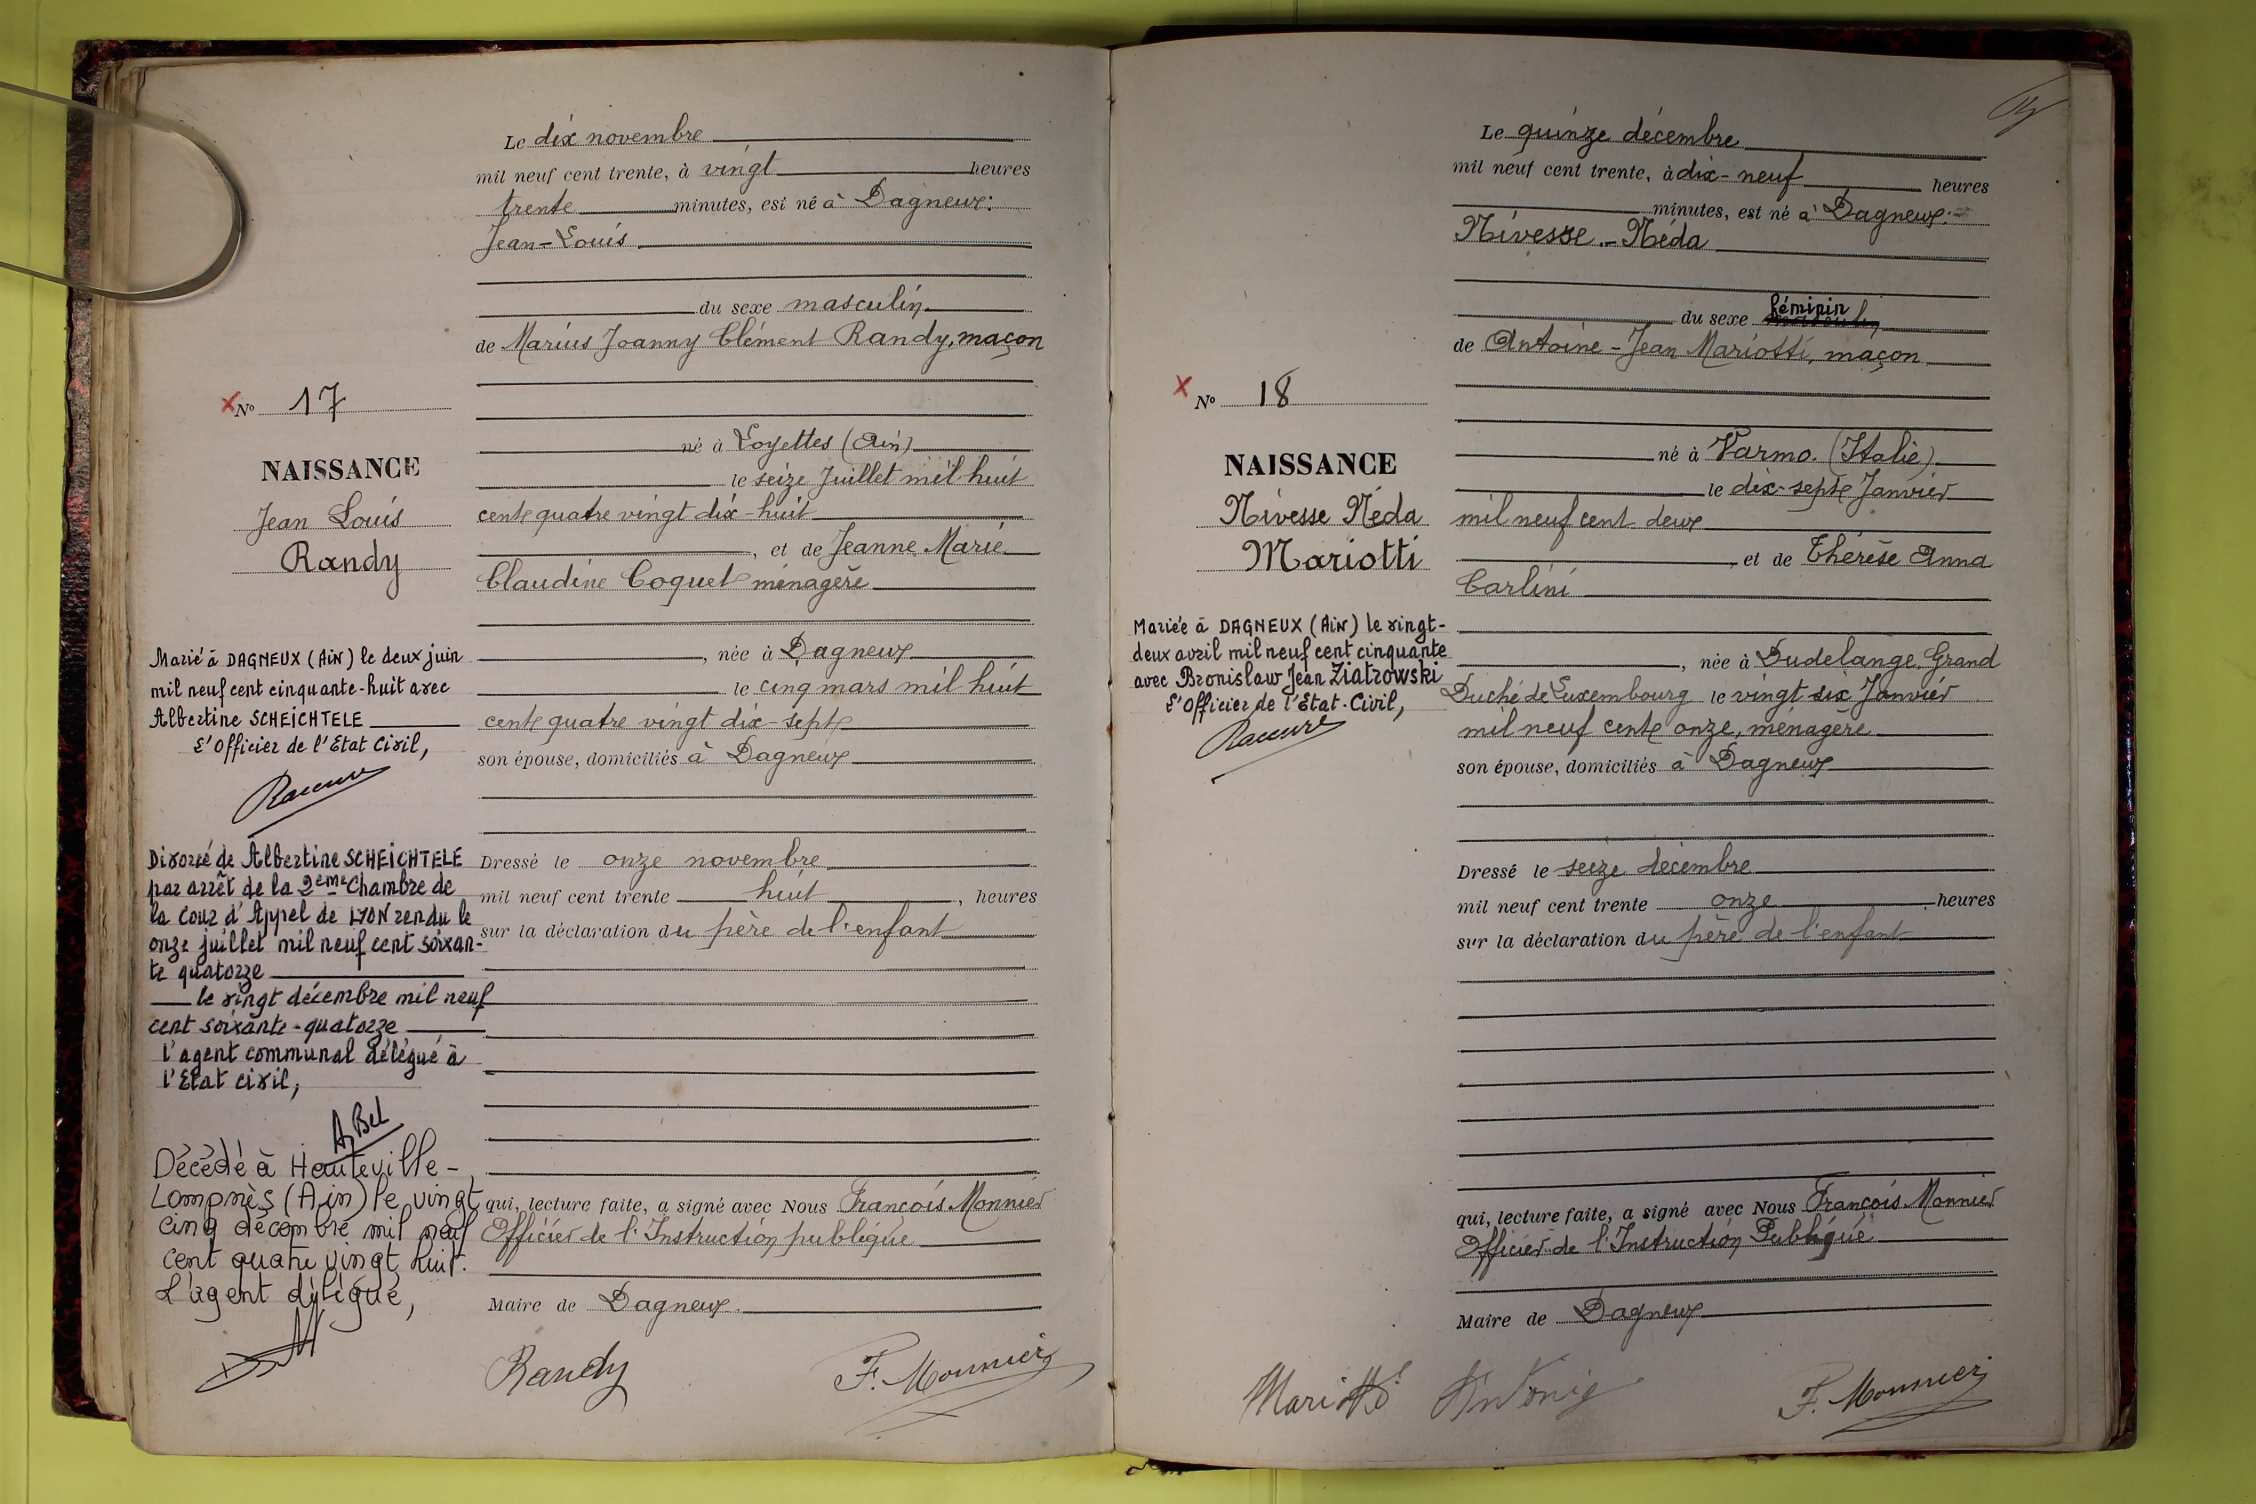 Le dix novembre
mil neuf cent trente, à vingt heures
trente minutes, est né à Dagneux:
Jean-Louis
du sexe masculin.
de Marius Joanny Clément Randy, maçon
né à Loyettes (Ain)
le seize Juillet mil huit
cent quatre vingt dix-huit
, et de Jeanne Marie
Claudine Coquet ménagère
, née à Dagneux
le cinq mars mil huit
cent quatre vingt dix-sept
son épouse, domiciliés à Dagneux
Dressé le onze novembre
mil neuf cent trente huit, heures
sur la déclaration du père de l'enfant
qui, lecture faite, a signé avec Nous François Monnier
Officier de l'Instruction publique
Maire de Dagneux.
Randy F. Monnier
X N° 17
NAISSANCE
Jean Louis
Randy
Marié à DAGNEUX (Ain) le deux juin
mil neuf cent cinquante-huit avec
Albertine SCHEICHTELE
L'Officier de l'Etat Civil,
Divorcé de Albertine SCHEICHTELE
par arrêt de la 2eme Chambre de
la Cour d'Appel de LYON rendu le
onze juillet mil neuf cent soixan-
te quatorze
le vingt décembre mil neuf
cent soixante-quatorze
l'agent communal délégué à
l'Etat civil,
Décédé à Hauteville-
Lompnès (Ain) le vingt
cinq décembre mil neuf
cent quatre vingt huit.
L'agent délégué,
Le quinze décembre
mil neuf cent trente, à dix-neuf heures
minutes, est né à Dagneux:
Nivesse-Néda
du sexe féminin
de Antoine-Jean Mariotti, maçon
né à Varmo. (Italie)
le dix-sept Janvier
mil neuf cent deux
, et de Thérèse Anna
Carlini
, née à Dudelange. Grand
Duché de Luxembourg le vingt six Janvier
mil neuf cent onze, ménagère
son épouse, domiciliés à Dagneux
Dressé le seize décembre
mil neuf cent trente onze heures
sur la déclaration du père de l'enfant
qui, lecture faite, a signé avec Nous François Monnier
Officier de l'Instruction Publique
Maire de Dagneux
Mariotti Antonio F. Monnier
X N° 18
NAISSANCE
Nivesse Néda
Mariotti
Mariée à DAGNEUX (Ain) le vingt-
deux avril mil neuf cent cinquante
avec Bronislaw Jean Ziatrowski
L'Officier de l'Etat-Civil,